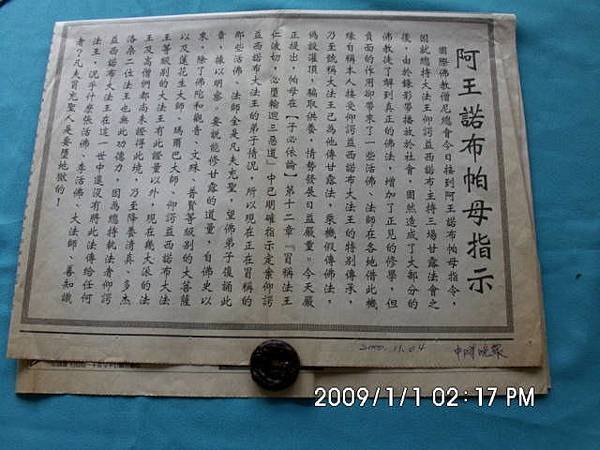 阿王諾布帕母指示
國際佛教僧尼總會今日接到阿王諾布帕母指令，
因就總持大法王仰諤益西諾布主持三場甘露法會之
後，由於錄影帶播放於社會，固然造成了大部分的
佛教徒了解到真正的佛法，增加了正見的修學，但
負面的作用卻帶來了一些活佛、法師在各地借此機
緣自稱本人接受仰諤益西諾布大法王的特別傳承，
乃至號稱大法王已為他傳甘露法，乘機假傳佛法，
偽設灌頂，騙取供養，情勢發展日益嚴重。今天嚴
正提出，帕母在【了必休論】第十二章「冒稱法王
仁波切，必墮輪迴三惡道」中已明確指示定案仰諤
益西諾布大法王的弟子情況，所以現在正在冒稱的
那些活佛、法師全是凡夫充聖，望佛弟子復誦此
章，據以明察。要說能修甘露的道量，自佛史以
來，除了佛陀和觀音、文殊、普賢等級別的大菩薩
以及蓮花生大師、瑪爾巴大師、仰諤益西諾布大法
王等級別的大法王有此證量以外，現在幾大派的法
王及高僧們都尚未證得此境，乃至降養清真、多杰
洛桑二位法王也無此功德力，因為總持執法者仰諤
益西諾布大法王在這一世中還沒有將此法傳給任何
法王，況乎什麼張活佛、李活佛、大法師、善知識
者？凡夫冒充聖人是要墮地獄的！
2000.11.04
中時晚報
2009/1/1 02:17 PM